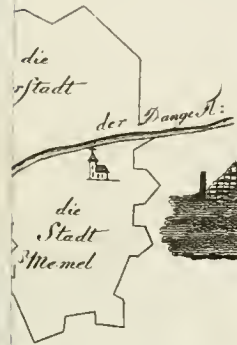 die
rStadt
der Dange Fl:
die
Stadt
Memel